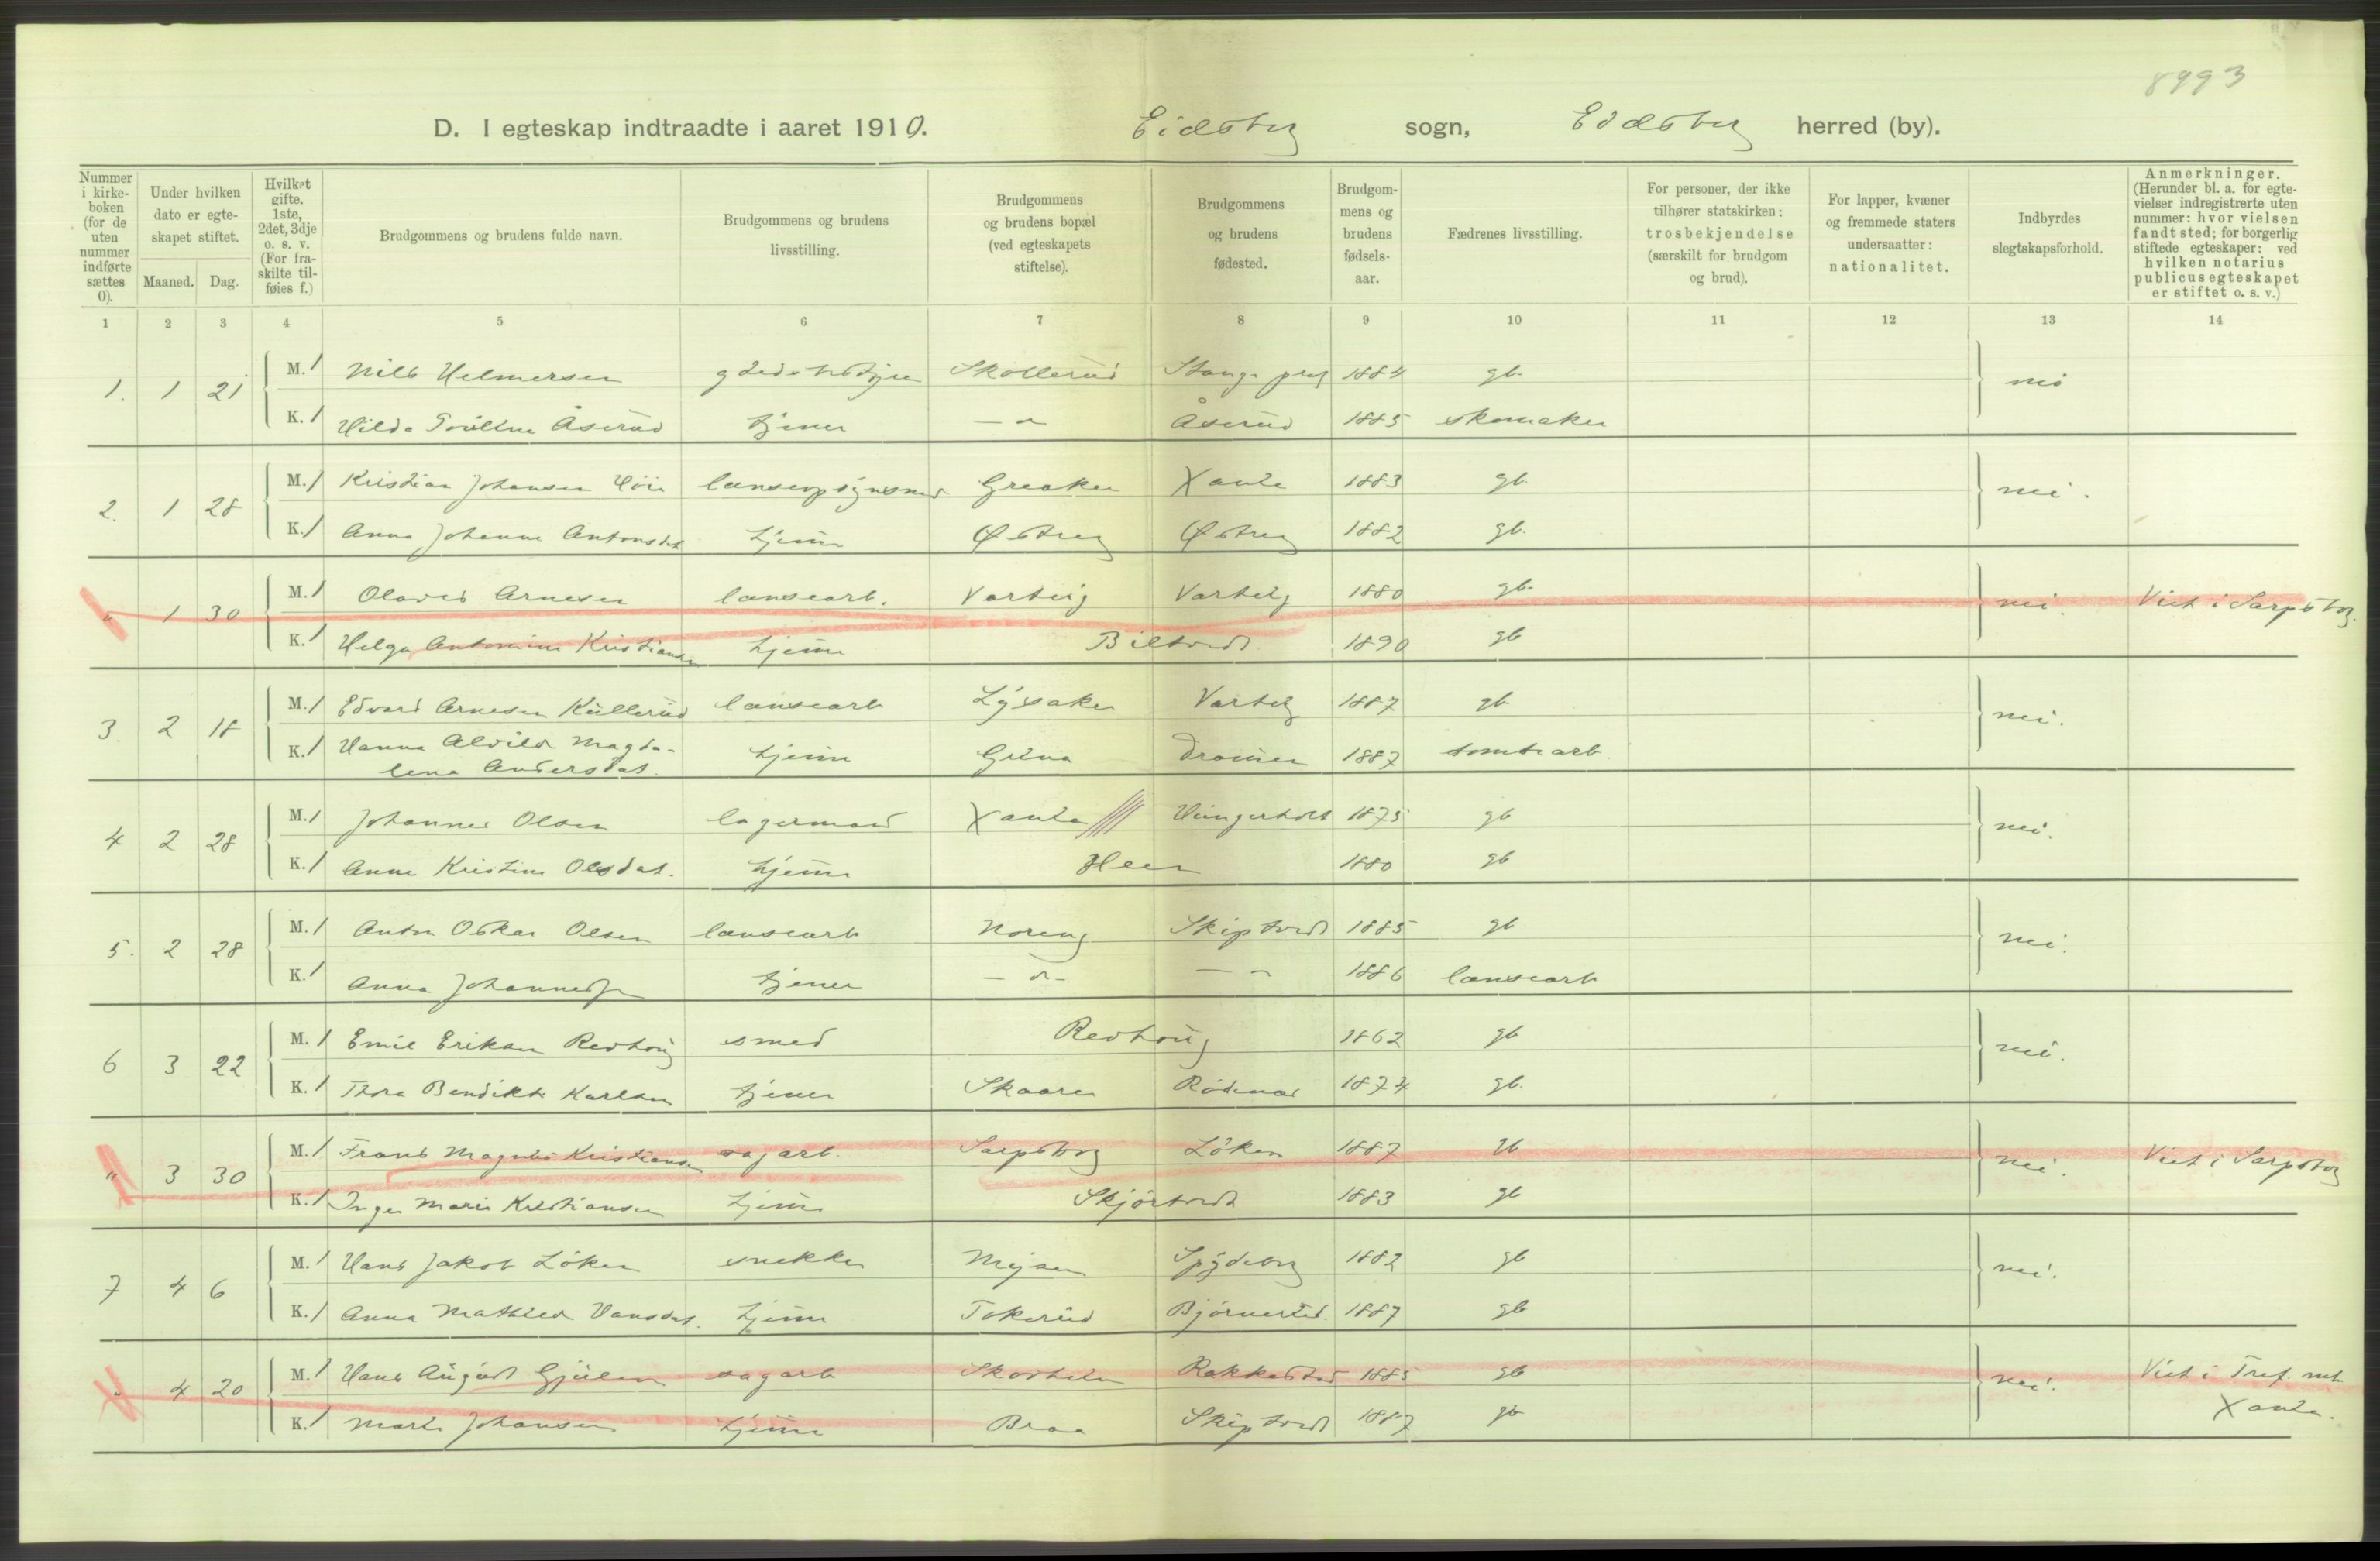 8993
D. I egteskap indtraadte i aaret 1910. Eidsberg sogn, Eidsberg herred (by).
Nummer i kirkeboken (for de uten nummer indførte sættes 0). Under hvilken dato er egteskapet stiftet. Maaned. Dag. Hvilket gifte. 1ste, 2det, 3dje o. s. v. (For fraskilte tilføies f.) Brudgommens og brudens fulde navn. Brudgommens og brudens livsstilling. Brudgommens og brudens bopæl (ved egteskapets stiftelse). Brudgommens og brudens fødested. Brudgommens og brudens fødselsaar. Fædrenes livsstilling. For personer, der ikke tilhører statskirken: trosbekjendelse (særskilt for brudgom og brud). For lapper, kvæner og fremmede staters undersaatter: nationalitet. Indbyrdes slegtskapsforhold. Anmerkninger. (Herunder bl. a. for egtevielser indregistrerte uten nummer: hvor vielsen fandt sted; for borgerlig stiftede egteskaper: ved hvilken notarius publicus egteskapet er stiftet o. s. v.)
1 2 3 4 5 6 7 8 9 10 11 12 13 14
1. 1 21 M. 1 Nils Helmersen Skollerud Stange 1884 gb. nei
K. 1 Hilda Åserud tjener Åserud 1885 skomaker
2. 1 28 M. 1 Kristian Johansen Höie Greaker Xania 1883 gb. nei.
K. 1 Anna Johanne Antonsdat hjemme Østreng Østreng 1882 gb.
" 1 30 M. 1 Olaves Arnesen lensearb. Varteig Varteig 1880 gb. nei. Viet i Sarpsborg.
K. 1 Helga Antonine Kristiansen hjemme Biltvedt 1890 gb
3. 2 18 M. 1 Edvard Arnesen Kullerud lensearb Lysaker Varteig 1887 gb nei.
K. 1 Hanna Alvilde Magda-
lena Andersdat. hjemme Dramen 1887 tomtearb.
4 2 28 M. 1 Johannes Olsen lagermand Xania 1875 gb nei.
K. 1 Anne Kristine Olesdat. hjemme Heen 1880 gb
5. 2 28 M. 1 Anton Oskar Olsen lensearb Noreng Skiptvedt 1885 gb nei.
K. 1 Anna Johannesen tjener 1886 lensearb
6 3 22 M. 1 Emil Eriksen Revhoug smed Revhoug 1862 gb nei.
K. 1 Thora Bendikte Karlsen tjener Skaaren Rödenæs 1874 gb.
" 3 30 M. 1 Frans Magnus Kristiansen sagarb. Sarpsborg Löken 1887 gb nei. Viet i Sarpsborg
K. 1 Inga Marie Kristiansen hjemme Skjörtvedt 1883 gb
7 4 6 M. 1 Hans Jakob Löken snekker Mysen Spydeberg 1882 gb nei.
K. 1 Anna Mathilde Hansdat. hjemme Tokerud Björnerstad 1887 gb
" 4 20 M. 1 Hans August Gjulem sagarb Rakkestad 1885 gb nei. Viet i Tref. mh.
K. 1 Marta Johansen hjemme Braa Skiptvedt 1887 gb Xania.